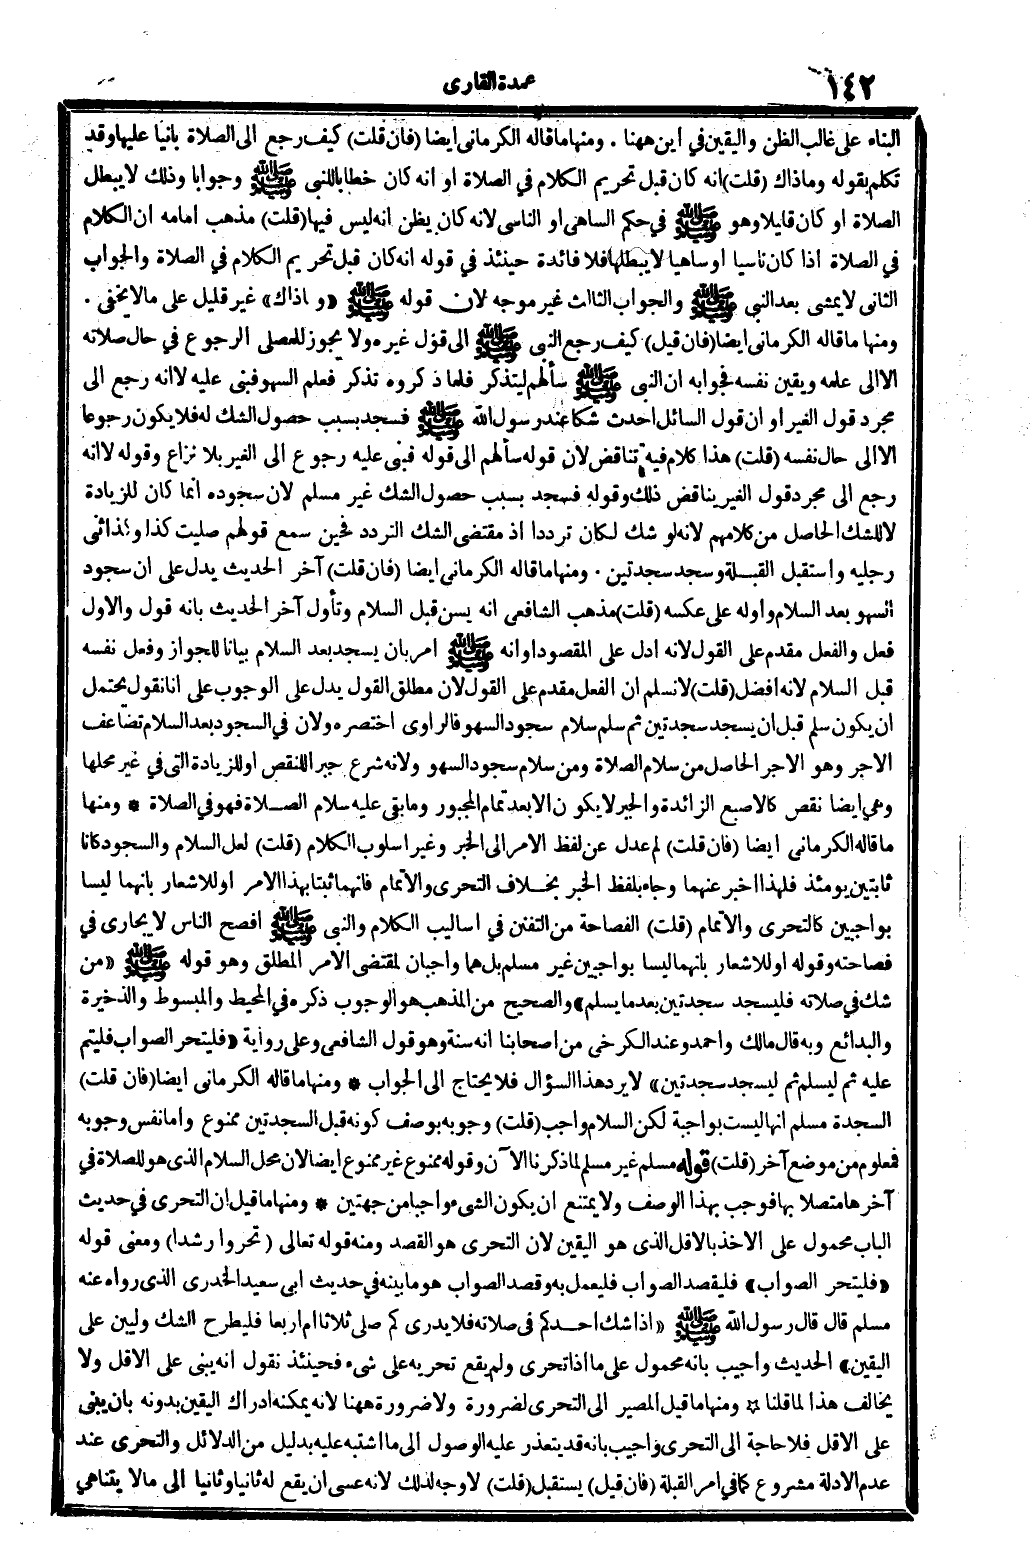 ١٤٢
عمدة القارى
البناء على غالب الظن واليقين في اين ههنا . ومنها ماقاله الكرمانى ايضا (فان قلت) كيف رجع الى الصلاة بانيا عليها وقد
تكلم بقوله وماذاك (قلت) انه كان قبل تحريم الكلام في الصلاة او انه كان خطابا للنبى ﷺ وجوابا وذلك لايبطل
الصلاة او كان قايلا وهو ﷺ في حكم الساهى او الناسى لانه كان يظن انه ليس فيها (قلت) مذهب امامه ان الكلام
في الصلاة اذا كان ناسيا او ساهيا لايبطلها فلا فائدة حينئذ في قوله انه كان قبل تحريم الكلام في الصلاة والجواب
الثانى لايمشى بعد النبى ﷺ والجواب الثالث غير موجه لان قوله ﷺ «وماذاك» غير قليل على مالايخفى .
ومنها ماقاله الكرمانى ايضا (فان قيل) كيف رجع النبى ﷺ الى قول غيره ولا يجوز للمصلى الرجوع في حال صلاته
الا الى علمه ويقين نفسه فجوابه ان النبى ﷺ سألهم ليتذكر فلما ذكروه تذكر فعلم السهو فبنى عليه لا انه رجع الى
مجرد قول الغير او ان قول السائل احدث شكا عند رسول الله ﷺ فسجد بسبب حصول الشك له فلا يكون رجوعا
الا الى حال نفسه (قلت) هذا كلام فيه تناقض لان قوله سألهم الى قوله فبنى عليه رجوع الى الغير بلا نزاع وقوله لا انه
رجع الى مجرد قول الغير يناقض ذلك وقوله فسجد بسبب حصول الشك غير مسلم لان سجوده انما كان للزيادة
لا للشك الحاصل من كلامهم لانه لو شك لكان ترددا اذ مقتضى الشك التردد فحين سمع قولهم صليت كذا وكذا ثنى
رجليه واستقبل القبلة وسجد سجدتين . ومنها ماقاله الكرمانى ايضا (فان قلت) آخر الحديث يدل على ان سجود
السهو بعد السلام واوله على عكسه (قلت) مذهب الشافعى انه يسن قبل السلام وتأول آخر الحديث بانه قول والاول
فعل والفعل مقدم على القول لانه ادل على المقصود او انه ﷺ امر بان يسجد بعد السلام بيانا للجواز وفعل نفسه
قبل السلام لانه افضل (قلت) لانسلم ان الفعل مقدم على القول لان مطلق القول يدل على الوجوب على انا نقول يحتمل
ان يكون سلم قبل ان يسجد سجدتين ثم سلم سلام سجود السهو فالراوى اختصره ولان في السجود بعد السلام تضاعف
الاجر وهو الاجر الحاصل من سلام الصلاة ومن سلام سجود السهو ولانه شرع جبرا للنقص او للزيادة التى في غير محلها
وهى ايضا نقص كالاصبع الزائدة والجبر لايكون الا بعد تمام المجبور ومابقى عليه سلام الصلاة فهو في الصلاة * ومنها
ماقاله الكرمانى ايضا (فان قلت) لم عدل عن لفظ الامر الى الخبر وغير اسلوب الكلام (قلت) لعل السلام والسجود كانا
ثابتين يومئذ فلهذا اخبر عنهما وجاء بلفظ الخبر بخلاف التحرى والاتمام فانهما ثبتا بهذا الامر او للاشعار بانهما ليسا
بواجبين كالتحرى والاتمام (قلت) الفصاحة من التفنن في اساليب الكلام والنبى ﷺ افصح الناس لايجارى في
فصاحته وقوله او للاشعار بانهما ليسا بواجبين غير مسلم بل هما واجبان لمقتضى الامر المطلق وهو قوله ﷺ «من
شك في صلاته فليسجد سجدتين بعد مايسلم» والصحيح من المذهب هو الوجوب ذكره في المحيط والمبسوط والذخيرة
والبدائع وبه قال مالك واحمد وعند الكرخى من اصحابنا انه سنة وهو قول الشافعى وعلى رواية «فليتحر الصواب فليتم
عليه ثم ليسلم ثم ليسجد سجدتين» لايرد هذا السؤال فلا يحتاج الى الجواب * ومنها ماقاله الكرمانى ايضا (فان قلت)
السجدة مسلم انها ليست بواجبة لكن السلام واجب (قلت) وجوبه بوصف كونه قبل السجدتين ممنوع واما نفس وجوبه
فمعلوم من موضع آخر (قلت) قوله مسلم غير مسلم لماذكرنا الآن وقوله ممنوع غير ممنوع ايضا لان محل السلام الذى هو للصلاة في
آخرها متصلا بها فوجب بهذا الوصف ولا يمتنع ان يكون الشىء واجبا من جهتين * ومنها ماقيل ان التحرى في حديث
الباب محمول على الاخذ بالاقل الذى هو اليقين لان التحرى هو القصد ومنه قوله تعالى (تحروا رشدا) ومعنى قوله
«فليتحر الصواب» فليقصد الصواب فليعمل به وقصد الصواب هو مابينه في حديث ابى سعيد الخدرى الذى رواه عنه
مسلم قال قال رسول الله ﷺ «اذا شك احدكم فى صلاته فلا يدرى كم صلى ثلاثا ام اربعا فليطرح الشك وليبن على
اليقين» الحديث واجيب بانه محمول على ما اذا تحرى ولم يقع تحريه على شىء فحينئذ نقول انه يبنى على الاقل ولا
يخالف هذا لماقلنا * ومنها ماقيل المصير الى التحرى لضرورة ولا ضرورة ههنا لانه يمكنه ادراك اليقين بدونه بان يبنى
على الاقل فلا حاجة الى التحرى واجيب بانه قد يتعذر عليه الوصول الى ما اشتبه عليه بدليل من الدلائل والتحرى عند
عدم الادلة مشروع كما في امر القبلة (فان قيل) يستقبل (قلت) لا وجه لذلك لانه عسى ان يقع له ثانيا وثانيا الى مالا يتناهى